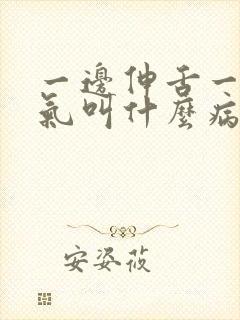 一邊伸舌一
氣叫什麼病
安姿莜